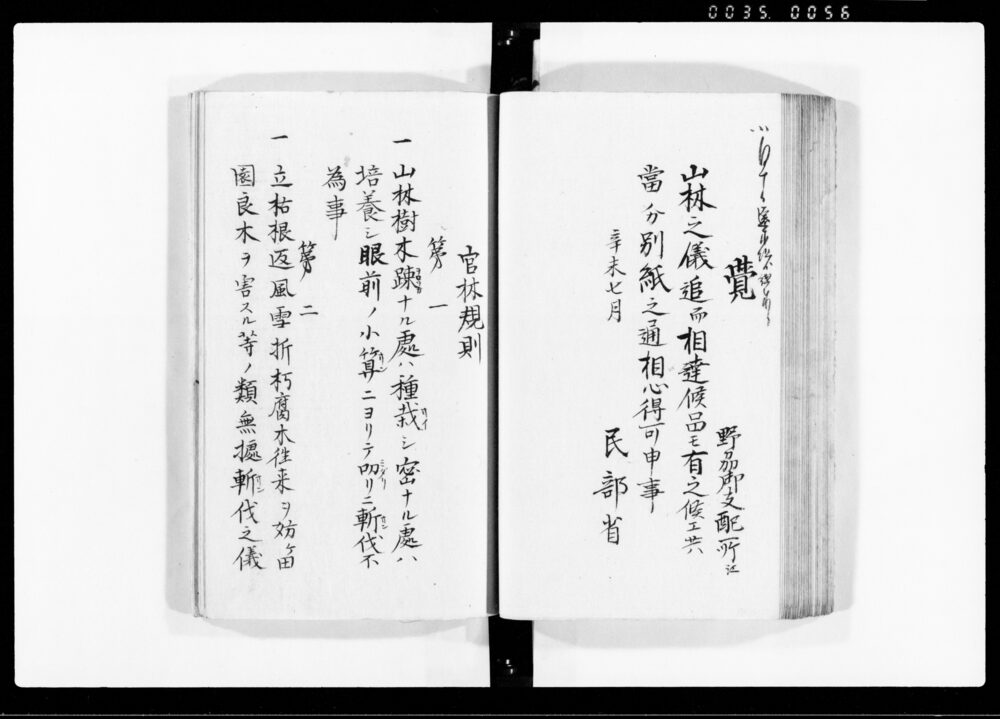 0035 0056
覺
野州御支配所江
山林之儀追而相達候品モ有之候エ共
當分別紙之通相心得可申事
辛未七月
民部省
官林規則
第一
一山林樹木踈ナル處ハ種栽シ密ナル處ハ
培養シ眼前ノ小算ニヨリテ叨リニ斬伐不
為事
第二
一立枯根返風雪折朽腐木徃来ヲ妨ケ田
園良木ヲ害スル等ノ類無據斬伐之儀